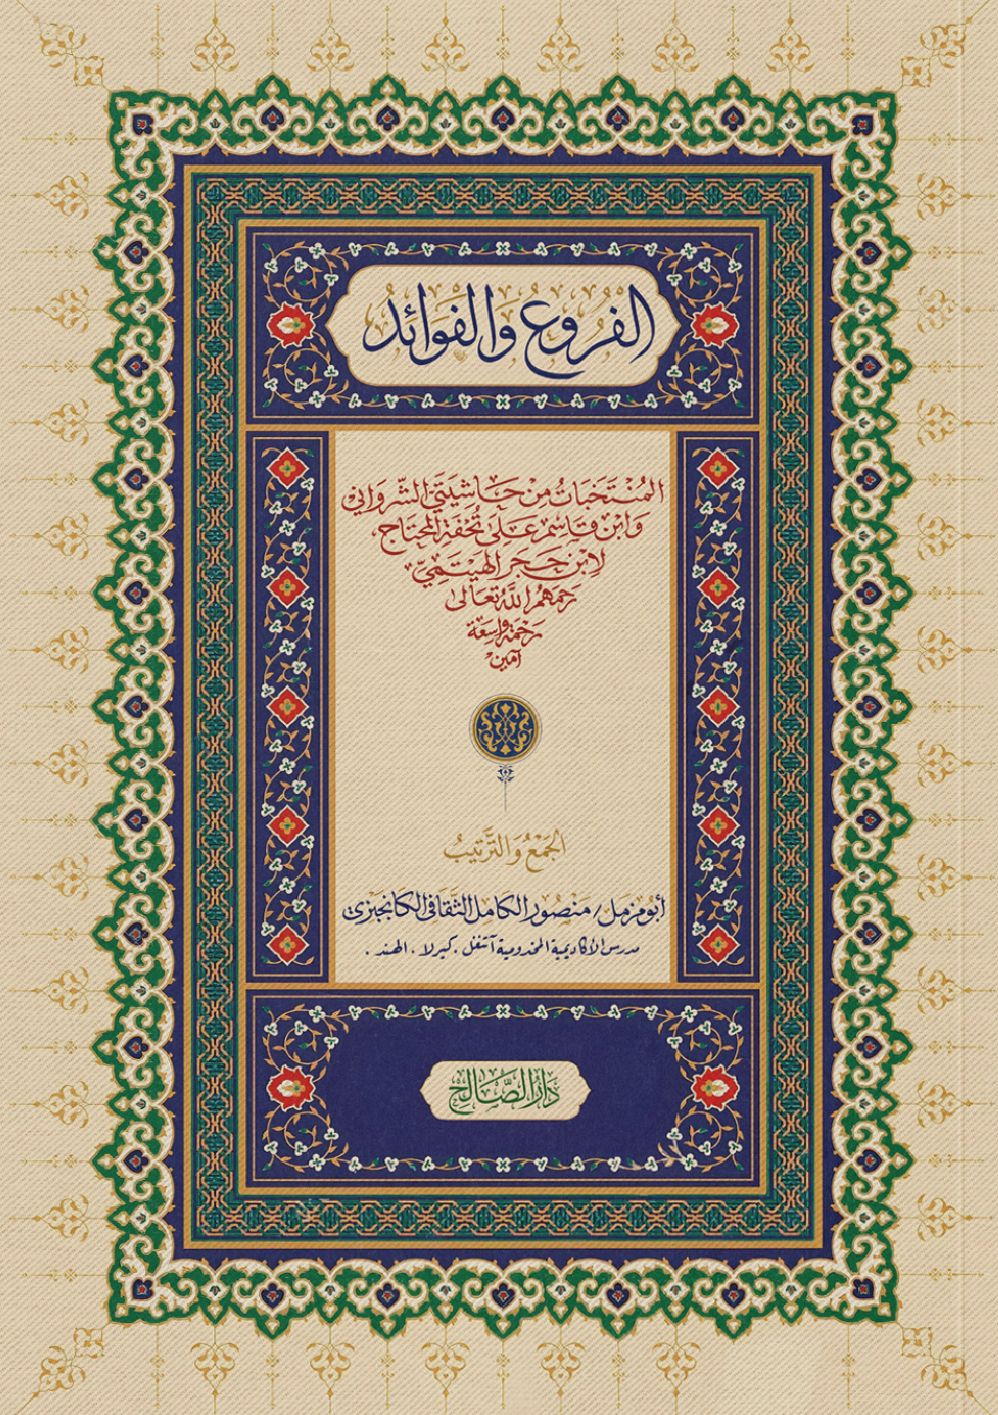 الفُرُوعُ وَالفَوَائِدُ
المُنْتَخَبَاتُ مِنْ حَاشِيَتَيِ الشِّرْوَانِيِّ
وَابْنِ قَاسِمٍ عَلَى تُحْفَةِ المُحْتَاجِ
لِابْنِ حَجَرِ الهَيْتَمِيِّ
رَحِمَهُمُ اللَّهُ تَعَالَى
رَحْمَةً وَاسِعَةً
آمين
الجَمْعُ وَالتَّرْتِيبُ
أبو مزمل / منصور الكامل الثَّقافي الكانجيزي
مدرس الأكاديمية المخدومية آتنغل . كيرلا . الهند .
دَارُ الصَّالِحْ